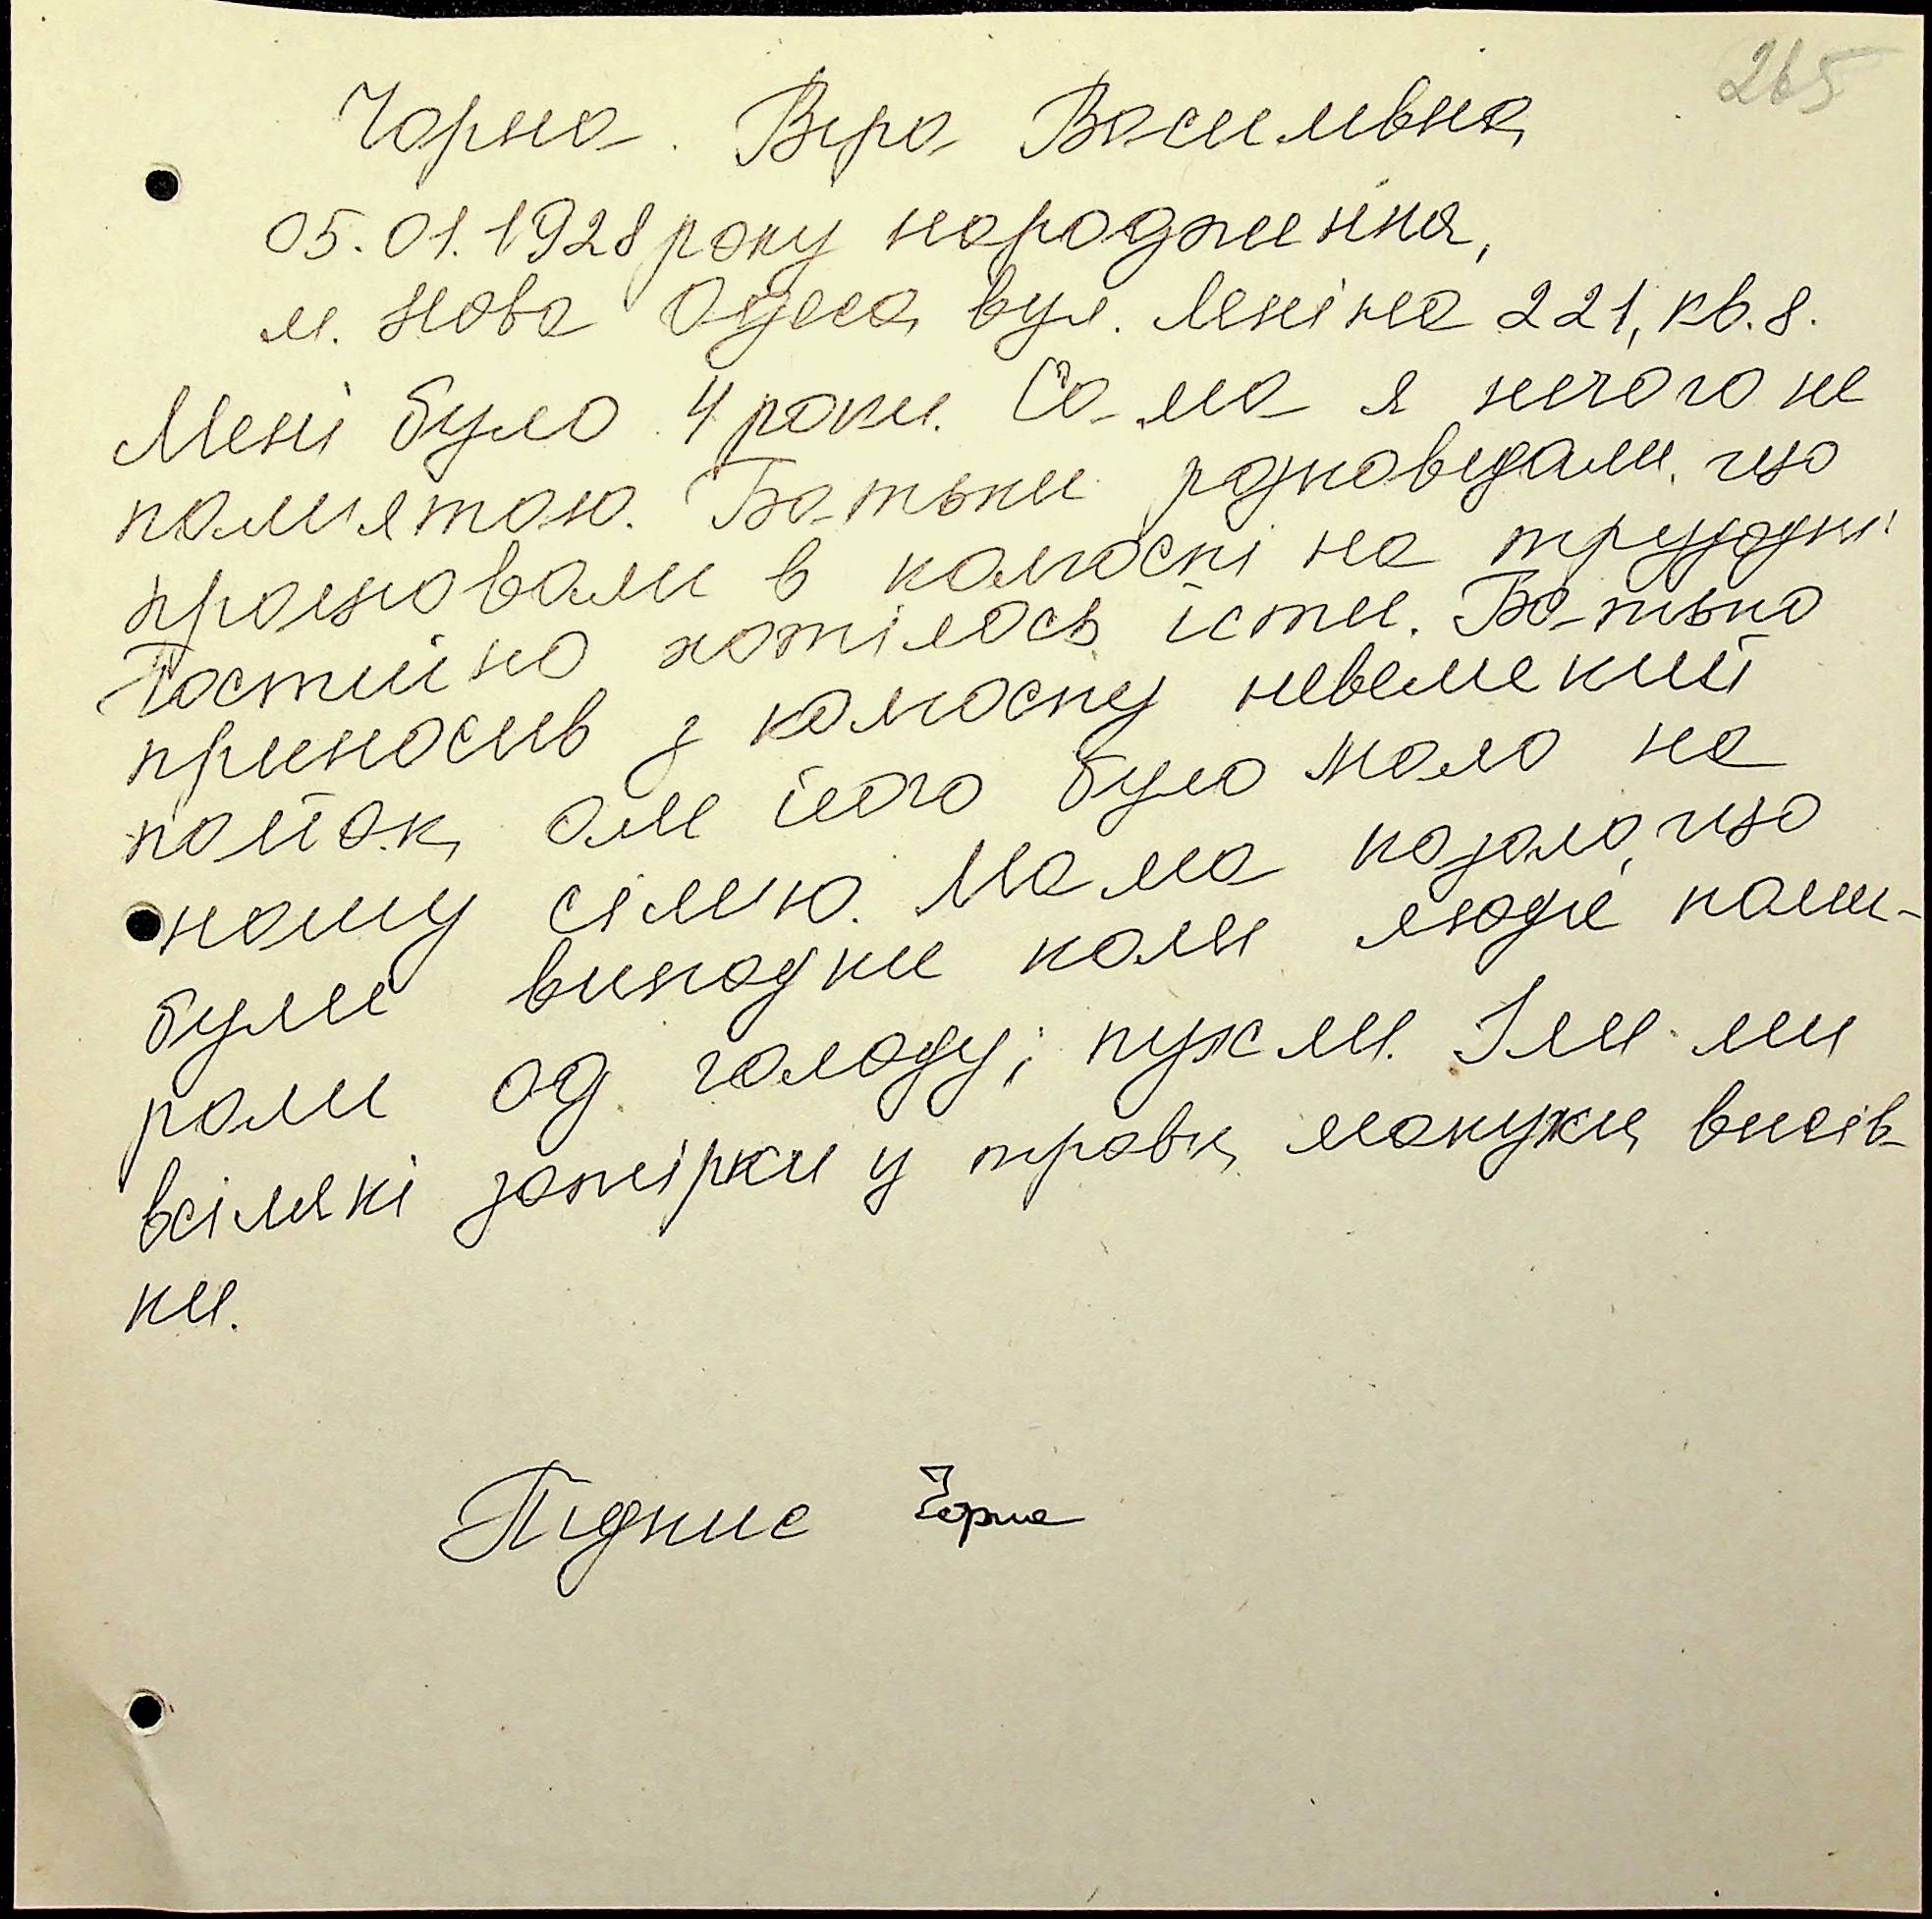 265
Чорна. Віра Василивна
05.01.1928 року народження,
м. Нова Одеса, вул. Леніна 221, кв. 8.
Мені було 4 роки. Сама я нечого не
памятаю. Батьки розповідали, що
працювали в колгоспі на трудодні.
Постийно хотілось їсти. Батько
приносив з колгоспу невелекий
пайок, але його було мало на
нашу сімю. Мама казала, що
були випадки коли люде поми-
рали од голоду, і пухли. Їли ми
всілякі затірки з трави, макухи, висів-
ки.
Підпис Чорна